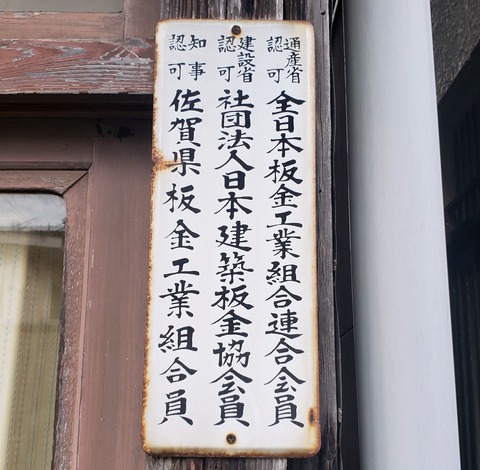 通産省認可 全日本板金工業組合連合会会員
建設省認可 社団法人日本建築板金協会会員
知事認可 佐賀県板金工業組合員